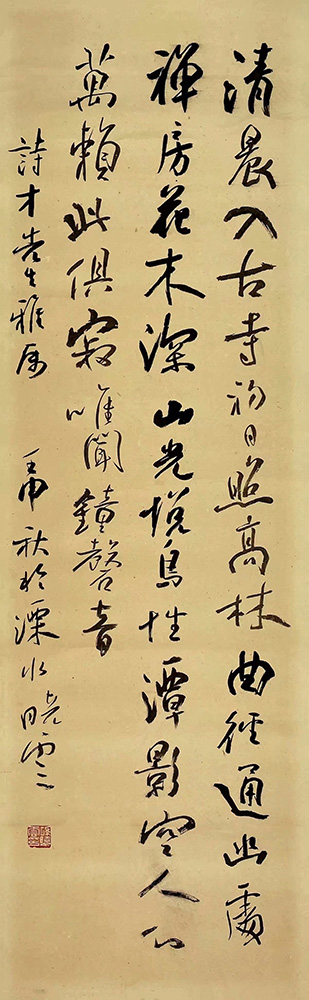 清晨入古寺初日照高林曲径通幽處
禅房花木深山光悦鳥性潭影空人心
萬賴此俱寂唯聞鐘磬音
詩才先生雅属 甲秋於深水曉雲